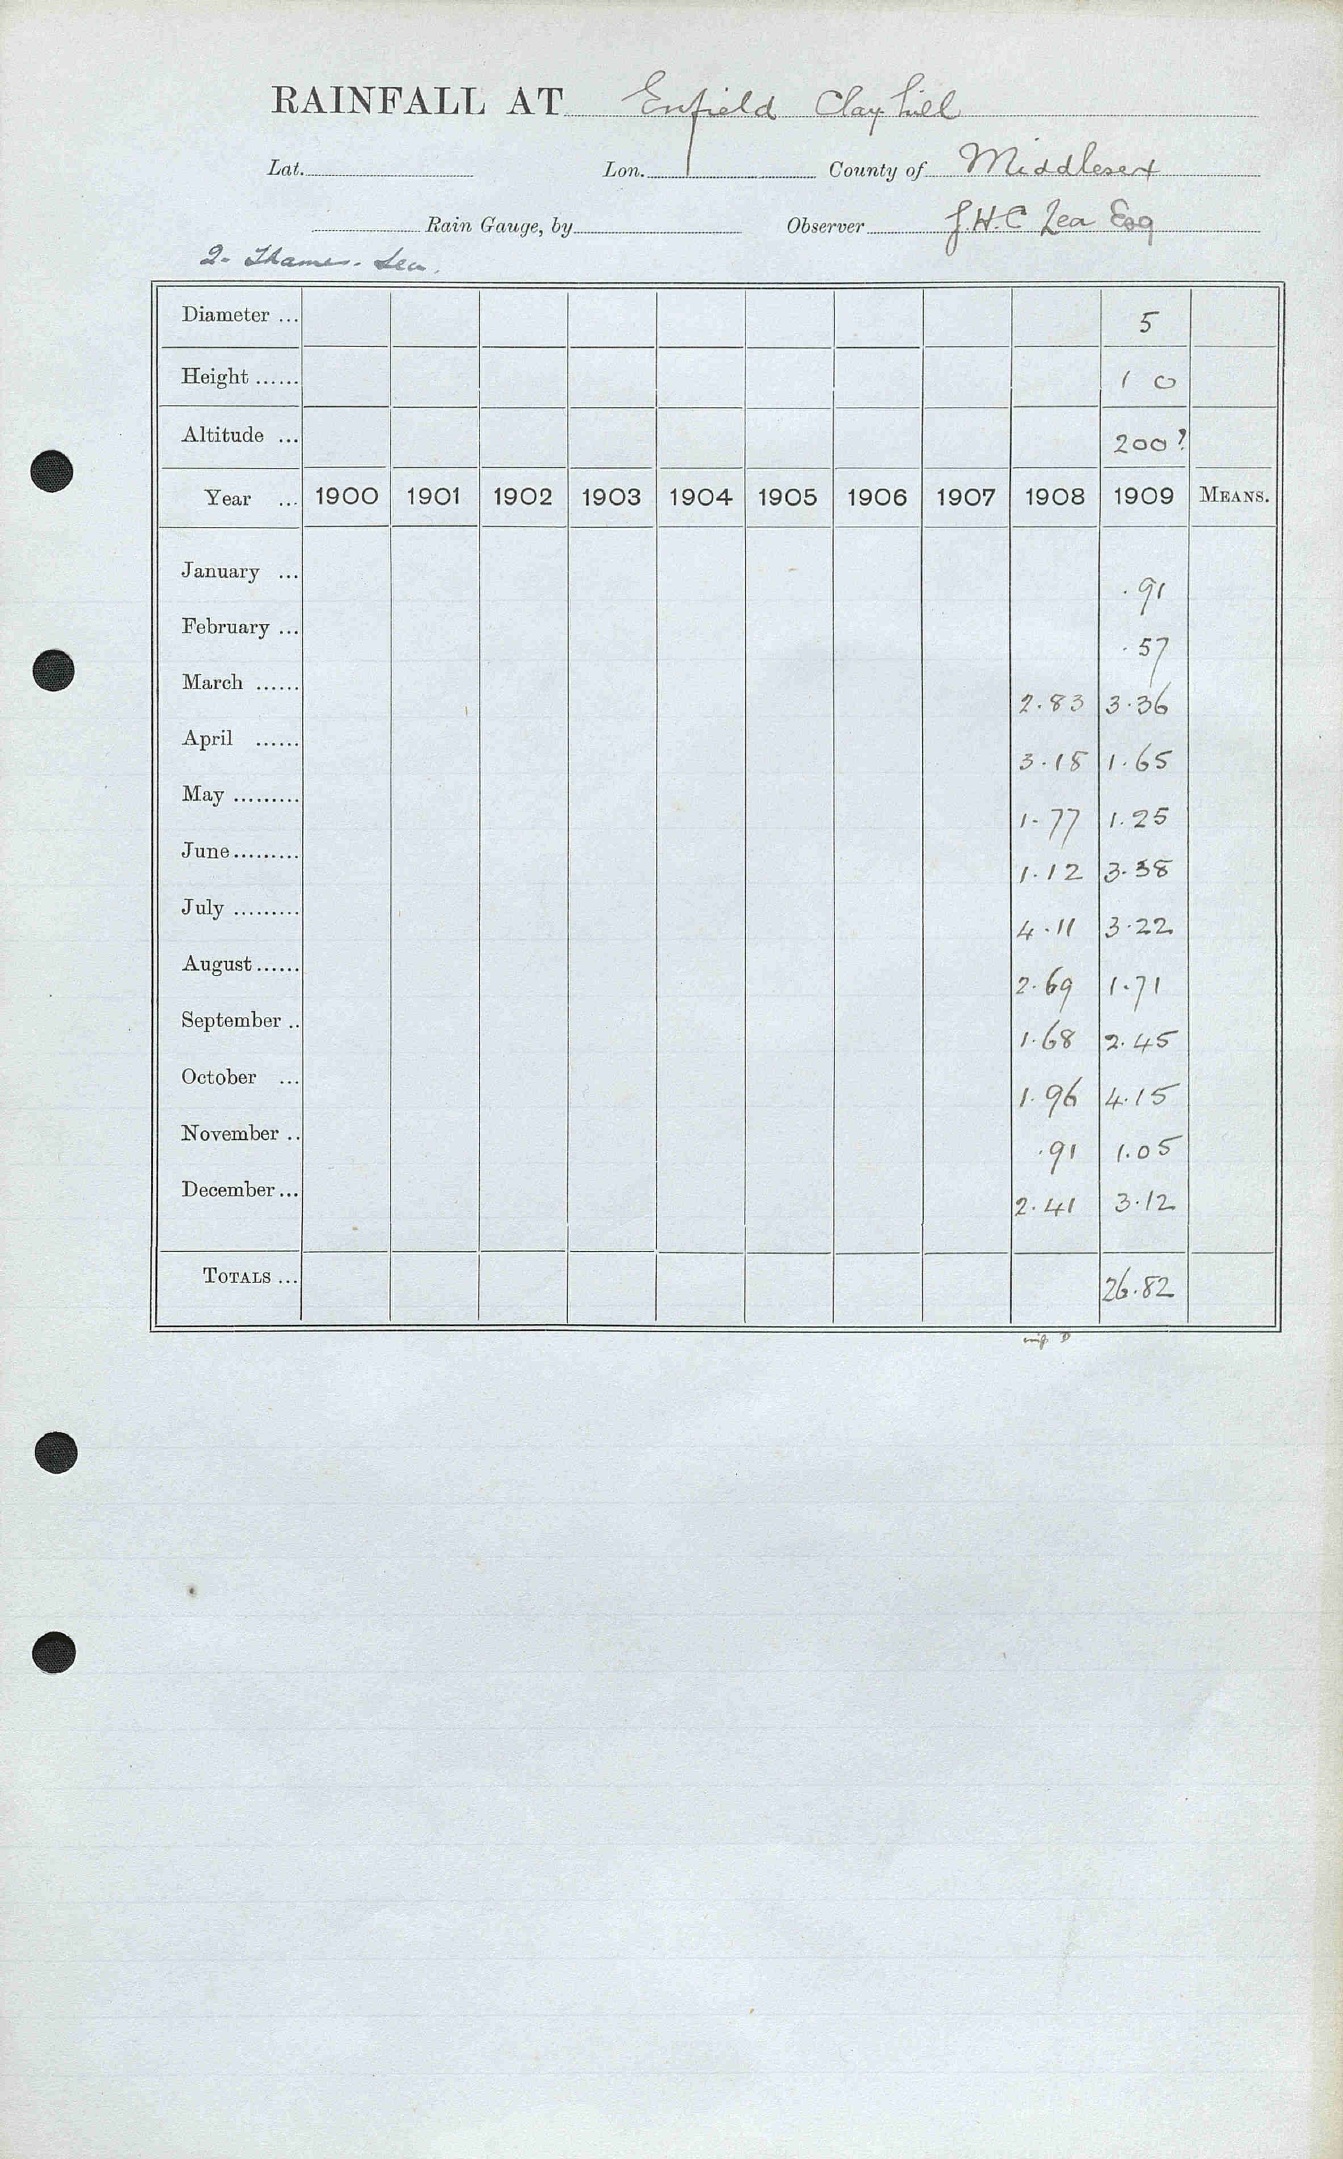 RAINFALL AT Enfield Clay hill
Lat. Lon. County of Middlesex
Rain Gauge, by Observer J.H.C Lea Esq
2. Thames. Lea.
Diameter ... 5
Height ...... 1 0
Altitude ... 200?
Year ... 1900 1901 1902 1903 1904 1905 1906 1907 1908 1909 MEANS.
January ... .91
February ... .57
March ...... 2.83 3.36
April ...... 3.18 1.65
May ......... 1.77 1.25
June ......... 1.12 3.38
July ......... 4.11 3.22
August ...... 2.69 1.71
September .. 1.68 2.45
October ... 1.96 4.15
November .. .91 1.05
December ... 2.41 3.12
TOTALS ... 26.82